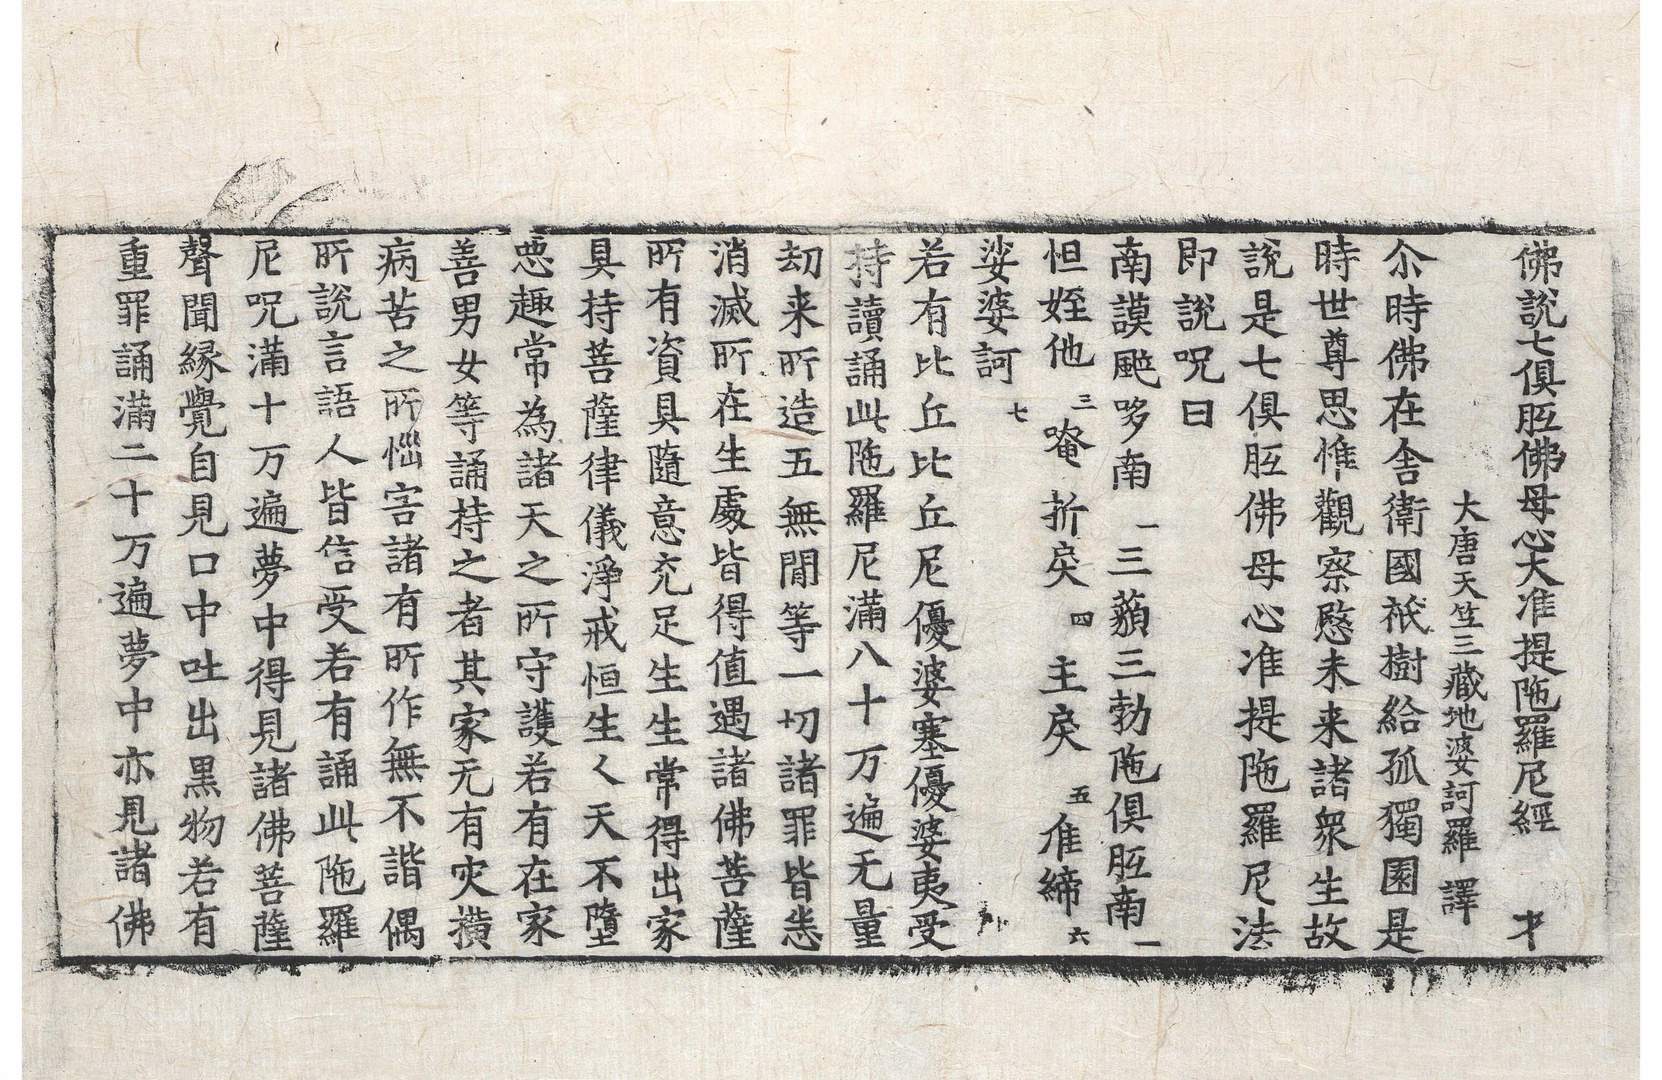 佛說七俱胝佛母心大准提陁羅尼經 才
大唐天竺三藏地婆訶羅 譯
尒時佛在舎衛國祇樹給孤獨園是
時世尊思惟觀察愍未来諸衆生故
說是七俱胝佛母心准提陁羅尼法
即說呪曰
南謨颰哆南 一 三藐三勃陁俱胝南 二
怛姪他 三 唵 折戾 四 主戾 五 准締 六
娑婆訶 七
若有比丘比丘尼優婆塞優婆夷受
持讀誦此陁羅尼滿八十万遍无量
刧来所造五無間等一切諸罪皆悉
消滅所在生處皆得值遇諸佛菩薩
所有資具隨意充足生生常得出家
具持菩薩律儀淨戒恒生人天不墮
惡趣常為諸天之所守護若有在家
善男女等誦持之者其家无有灾横
病苦之所惱害諸有所作無不諧偶
所說言語人皆信受若有誦此陁羅
尼呪滿十万遍夢中得見諸佛菩薩
聲聞縁覺自見口中吐出黒物若有
重罪誦滿二十万遍夢中亦見諸佛